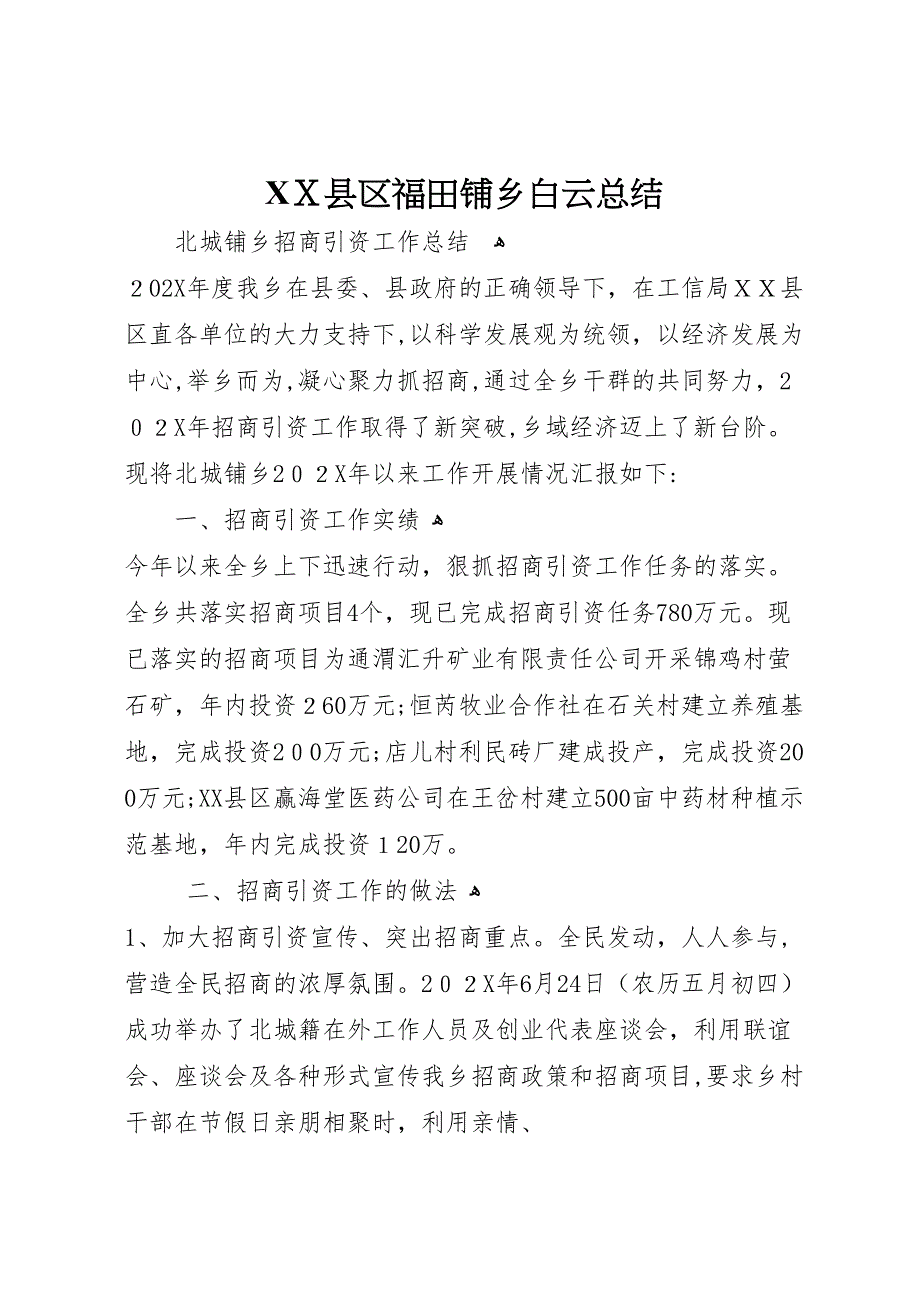 XＸ县区福田铺乡白云总结
北城铺乡招商引资工作总结 ﻫ
２02X年度我乡在县委、县政府的正确领导下，在工信局ＸＸ县
区直各单位的大力支持下,以科学发展观为统领，以经济发展为
中心,举乡而为,凝心聚力抓招商,通过全乡干群的共同努力，２
０２X年招商引资工作取得了新突破,乡域经济迈上了新台阶。
现将北城铺乡2０２X年以来工作开展情况汇报如下:
一、招商引资工作实绩 ﻫ
今年以来全乡上下迅速行动，狠抓招商引资工作任务的落实。
全乡共落实招商项目4个，现已完成招商引资任务780万元。现
已落实的招商项目为通渭汇升矿业有限责任公司开采锦鸡村萤
石矿，年内投资２60万元;恒芮牧业合作社在石关村建立养殖基
地，完成投资2００万元;店儿村利民砖厂建成投产，完成投资20
0万元;XX县区赢海堂医药公司在王岔村建立500亩中药材种植示
范基地，年内完成投资１20万。
二、招商引资工作的做法 ﻫ
1、加大招商引资宣传、突出招商重点。全民发动，人人参与,
营造全民招商的浓厚氛围。2０２X年6月24日（农历五月初四）
成功举办了北城籍在外工作人员及创业代表座谈会，利用联谊
会、座谈会及各种形式宣传我乡招商政策和招商项目,要求乡村
干部在节假日亲朋相聚时，利用亲情、